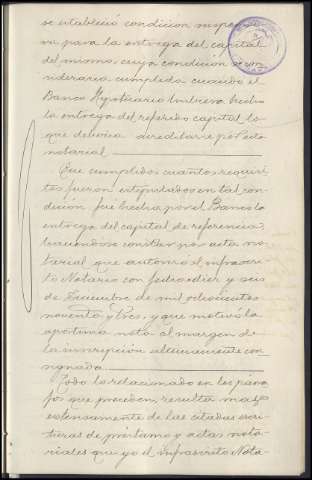 se estableció condicion suspensi-
va para la entrega del capital
del mismo, cuya condicion se con-
sideraria cumplida cuando el
Banco Hipotecario hubiera hecho
la entrega del referido capital lo
que deberia acreditarse por acta
notarial
Que cumplidos cuantos requisi-
tos fueron estipulados en tal con-
dición fué hecha por el Banco la
entrega del capital de referencia
haciendose constar por acta no-
tarial que autorizó el infrascri-
to Notario con fecha diez y seis
de Diciembre de mil ochocientos
noventa y tres, y que motivó la
septima nota al margen de
la inscripción ultimamente con
signada
Todo lo relacionado en los párra
fos que preceden, resulta mas
extensamente de las citadas escri-
turas de préstamo y actas nota-
riales que yo el infrascrito Nota-